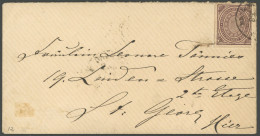 Fräulein Leonore Tönnies
19. Linden Strasse
2te Etage
St. Georg
Hier